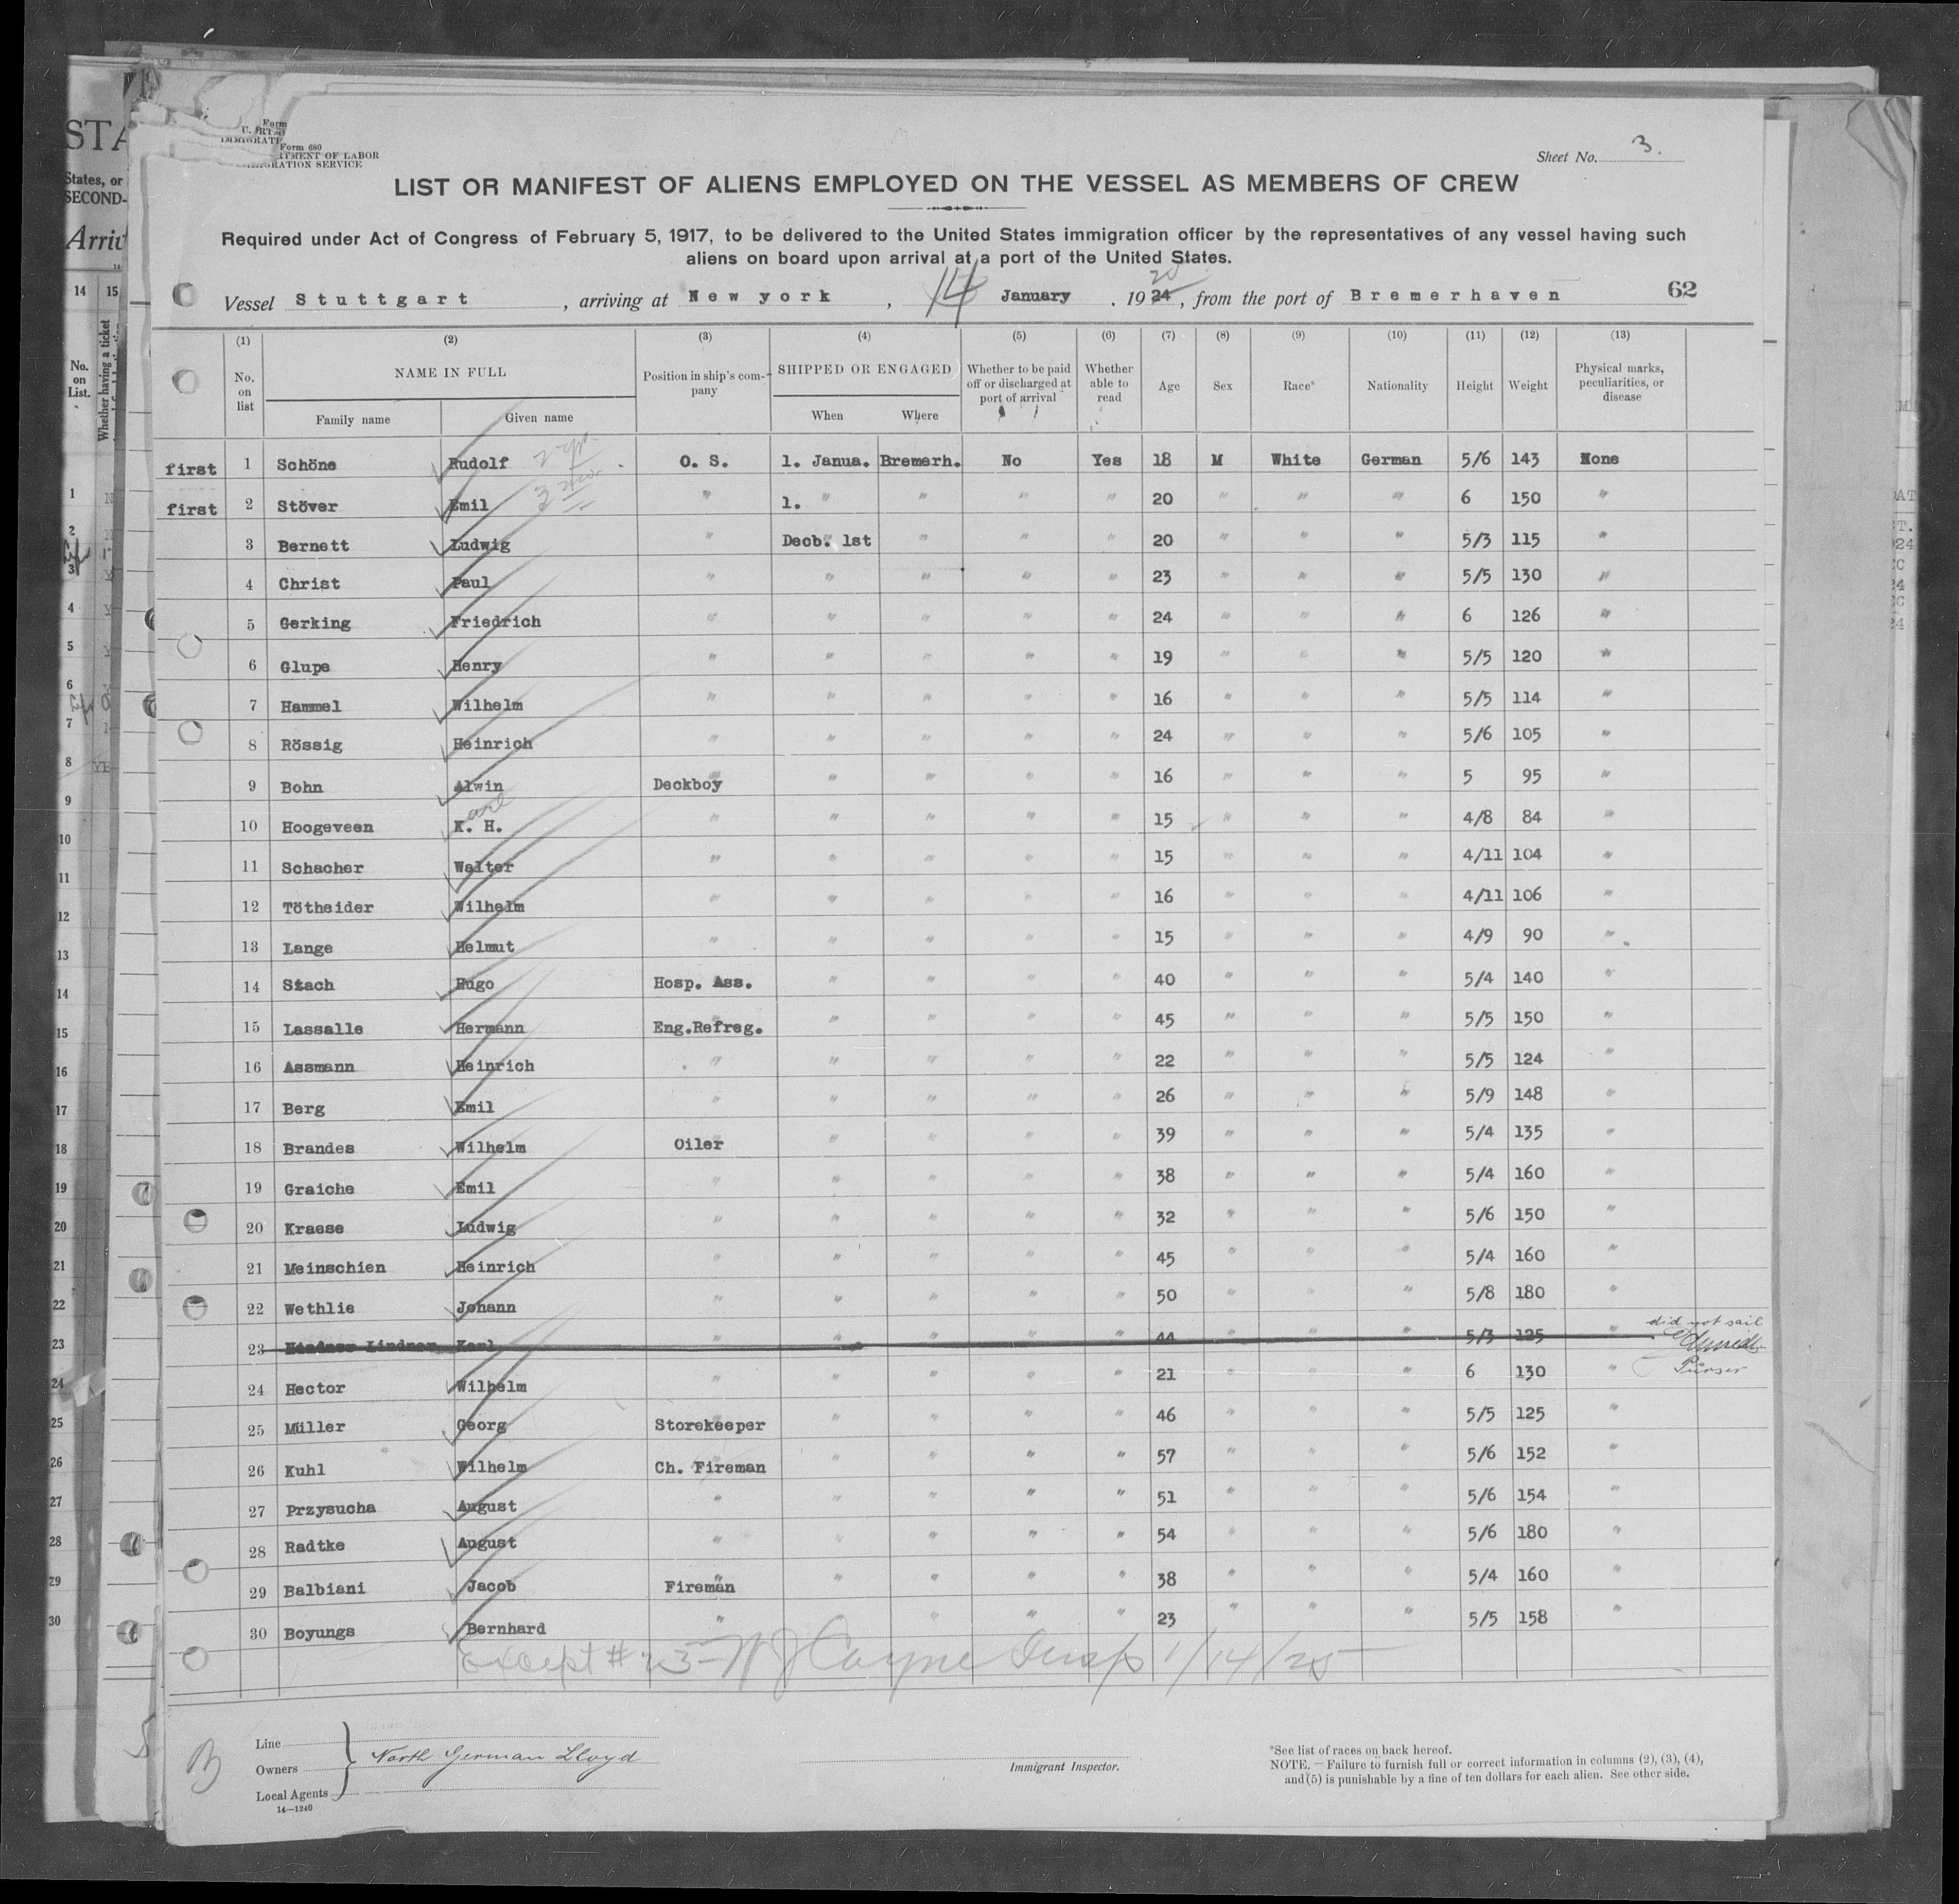 STA
States, or
SECOND-
Arriv
14 15
No.
on
List.
Whether having a ticket
Form 680
RTMENT OF LABOR
RATION SERVICE
Sheet No. 3.
LIST OR MANIFEST OF ALIENS EMPLOYED ON THE VESSEL AS MEMBERS OF CREW
Required under Act of Congress of February 5, 1917, to be delivered to the United States immigration officer by the representatives of any vessel having such
aliens on board upon arrival at a port of the United States.
Vessel Stuttgart, arriving at New york, 14 January, 1924, from the port of Bremerhaven 62
(1) (2) (3) (4) (5) (6) (7) (8) (9) (10) (11) (12) (13)
No. on list NAME IN FULL Family name Given name Position in ship's com-pany SHIPPED OR ENGAGED When Where Whether to be paid off or discharged at port of arrival Whether able to read Age Sex Race* Nationality Height Weight Physical marks, peculiarities, or disease
first 1 Schöne Rudolf O. S. 1. Janua. Bremerh. No Yes 18 M White German 5/6 143 None
first 2 Stöver Emil " 1. " " " " 20 " " " 6 150 "
3 Bernett Ludwig " Decb. 1st " " " 20 " " " 5/3 115 "
4 Christ Paul " " " " " 23 " " " 5/5 130 "
5 Gerking Friedrich " " " " " 24 " " " 6 126 "
6 Glupe Henry " " " " " 19 " " " 5/5 120 "
7 Hammel Wilhelm " " " " " 16 " " " 5/5 114 "
8 Rössig Heinrich " " " " " 24 " " " 5/6 105 "
9 Bohn Alwin Deckboy " " " " 16 " " " 5 95 "
arl
10 Hoogeveen K. H. " " " " " 15 " " " 4/8 84 "
11 Schacher Walter " " " " " 15 " " " 4/11 104 "
12 Tötheider Wilhelm " " " " " 16 " " " 4/11 106 "
13 Lange Helmut " " " " " 15 " " " 4/9 90 "
14 Stach Hugo Hosp. Ass. " " " " 40 " " " 5/4 140 "
15 Lassalle Hermann Eng.Refreg. " " " " 45 " " " 5/5 150 "
16 Assmann Heinrich " " " " " 22 " " " 5/5 124 "
17 Berg Emil " " " " " 26 " " " 5/9 148 "
18 Brandes Wilhelm Oiler " " " " 39 " " " 5/4 135 "
19 Graiche Emil " " " " " 38 " " " 5/4 160 "
20 Kraese Ludwig " " " " " 32 " " " 5/6 150 "
21 Meinschien Heinrich " " " " " 45 " " " 5/4 160 "
22 Wethlie Johann " " " " " 50 " " " 5/8 180 "
23 Lindner Karl " " " " " 44 " " " 5/3 125 " did not sail
Purser
24 Hector Wilhelm " " " " " 21 " " " 6 130 "
25 Müller Georg Storekeeper " " " " 46 " " " 5/5 125 "
26 Kuhl Wilhelm Ch. Fireman " " " " 57 " " " 5/6 152 "
27 Przysucha August " " " " " 51 " " " 5/6 154 "
28 Radtke August " " " " " 54 " " " 5/6 180 "
29 Balbiani Jacob Fireman " " " " 38 " " " 5/4 160 "
30 Boyungs Bernhard " " " " 23 " " " 5/5 158 "
Except # 23 - W J Coyne Insp 1/14/25
Line
Owners North German Lloyd
Local Agents
14—1240
Immigrant Inspector.
*See list of races on back hereof.
NOTE.—Failure to furnish full or correct information in columns (2), (3), (4),
and (5) is punishable by a fine of ten dollars for each alien. See other side.